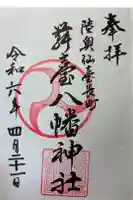 奉拝
陸奥仙台長町
舞台八幡神社
令和六年四月二十一日